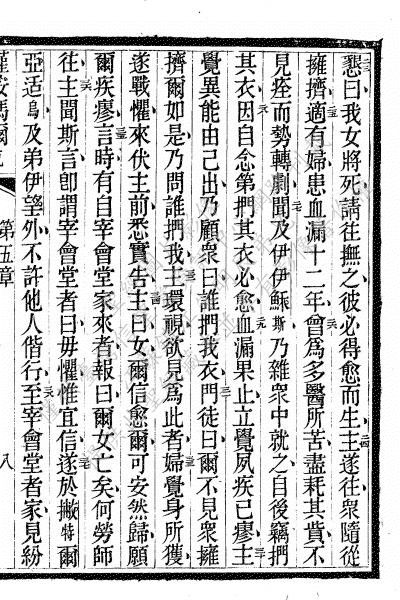 懇曰我女將死請往撫之彼必得愈而生主遂往衆隨從
擁擠適有婦患血漏十二年曾爲多醫所苦盡耗其貲不
見痊而勢轉劇聞及伊伊穌斯乃雜衆中就之自後竊捫
其衣因自念第捫其衣必愈血漏果止立覺夙疾已瘳主
覺異能由己出乃顧衆曰誰捫我衣門徒曰爾不見衆擁
擠爾如是乃問誰捫我主環視欲見爲此者婦覺身所獲
遂戰懼來伏主前悉實告主曰女爾信愈爾可安然歸願
爾疾瘳言時有自宰會堂家來者報曰爾女亡矣何勞師
往主聞斯言卽謂宰會堂者曰毋懼惟宜信遂於撇特爾
亞适烏及弟伊望外不許他人偕行至宰會堂者家見紛
第五章
八